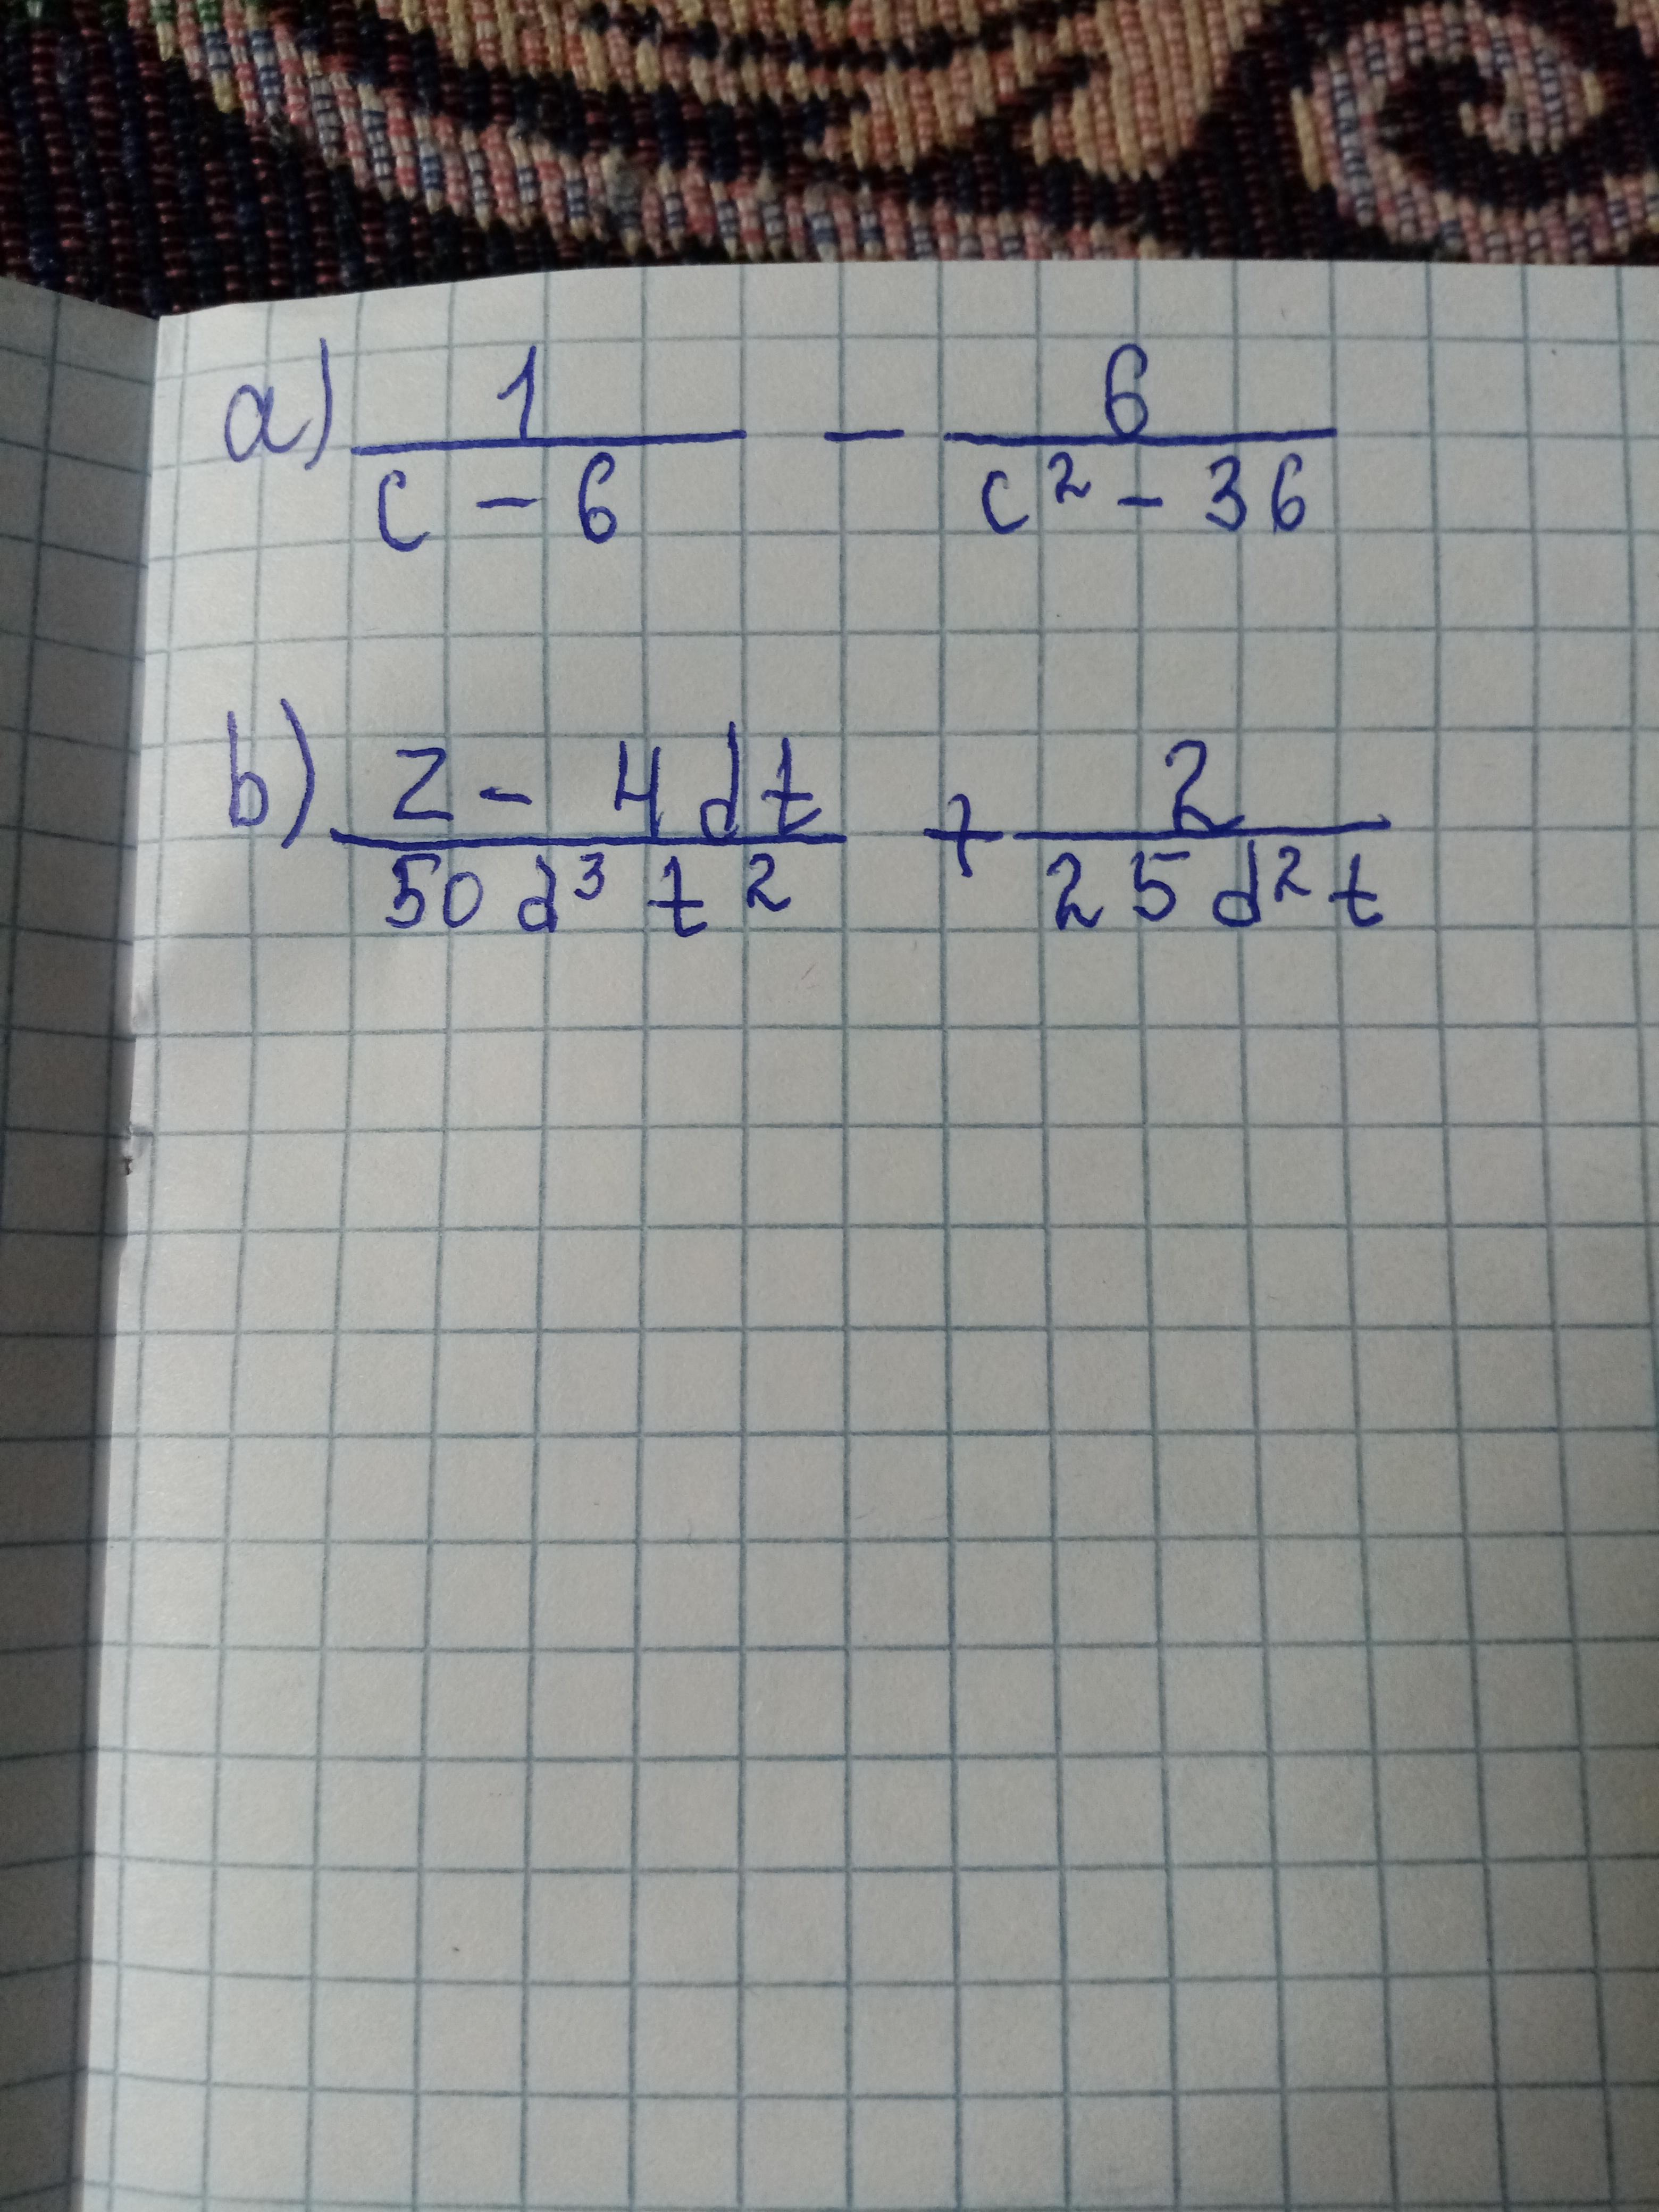 a) 1/(c - 6) - 6/(c² - 36)
b) (z - 4dt)/(50d³t²) + 2/(25d²t)